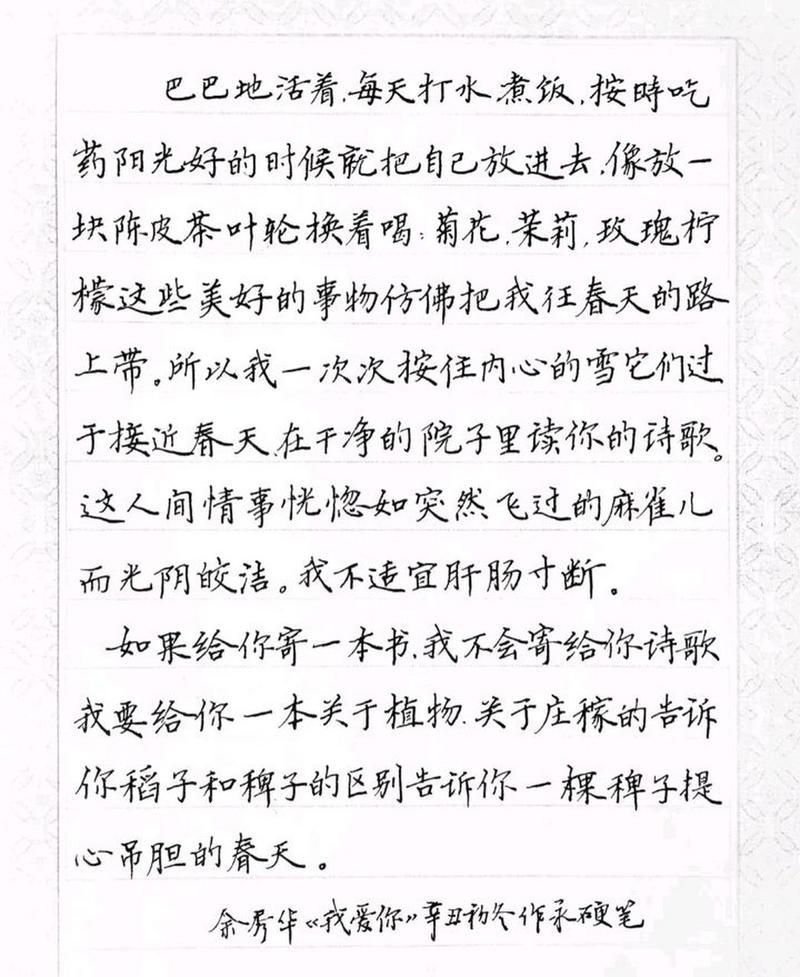 巴巴地活着,每天打水,煮饭,按時吃
药阳光好的时候就把自己放进去,像放一
块陈皮茶叶轮换着喝:菊花,茉莉,玫瑰柠
檬这些美好的事物仿佛把我往春天的路
上带。所以我一次次按住内心的雪它们过
于接近春天,在干净的院子里读你的诗歌。
这人间情事恍惚如突然飞过的麻雀儿
而光阴皎洁。我不适宜肝肠寸断。
如果给你寄一本书,我不会寄给你诗歌
我要给你一本关于植物,关于庄稼的告诉
你稻子和稗子的区别告诉你一棵稗子提
心吊胆的春天。
余秀华《我爱你》辛丑初冬作永硬笔